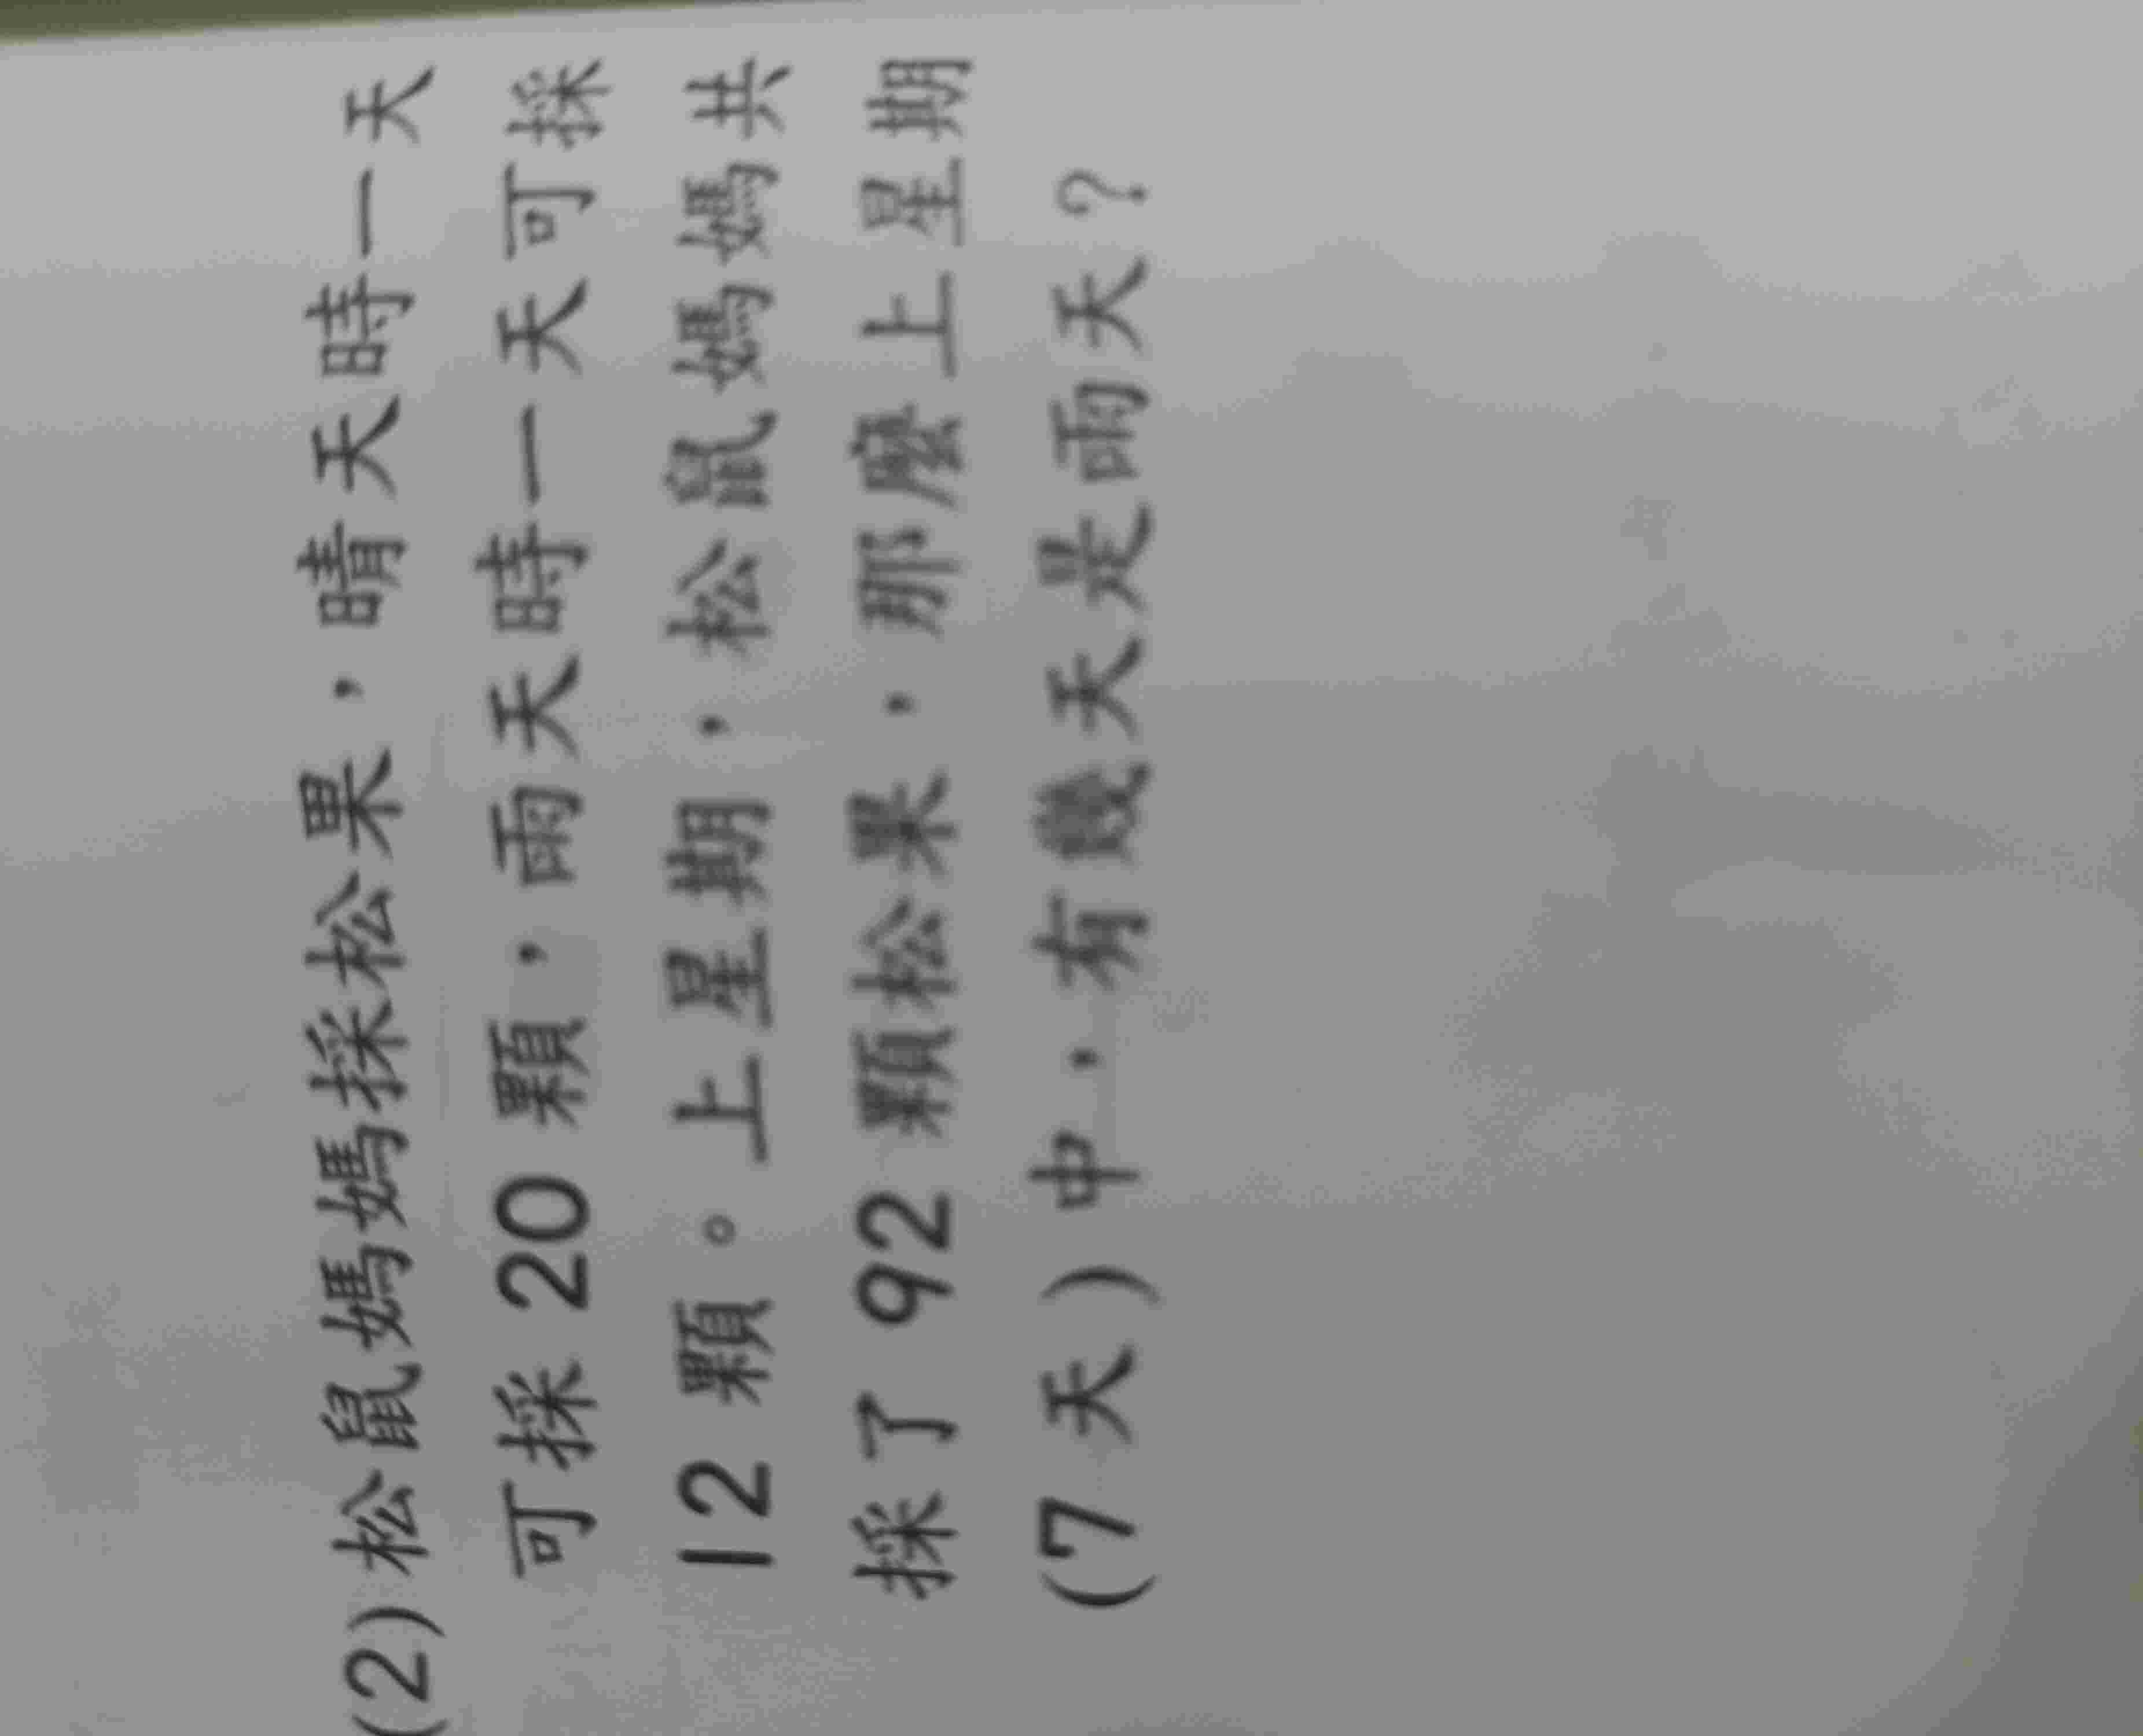 (2)松鼠媽媽採松果,晴天時一天
可採 20 顆,雨天時一天可採
12 顆。上星期,松鼠媽媽共
採了 92 顆松果,那麼上星期
(7 天)中,有幾天是雨天?